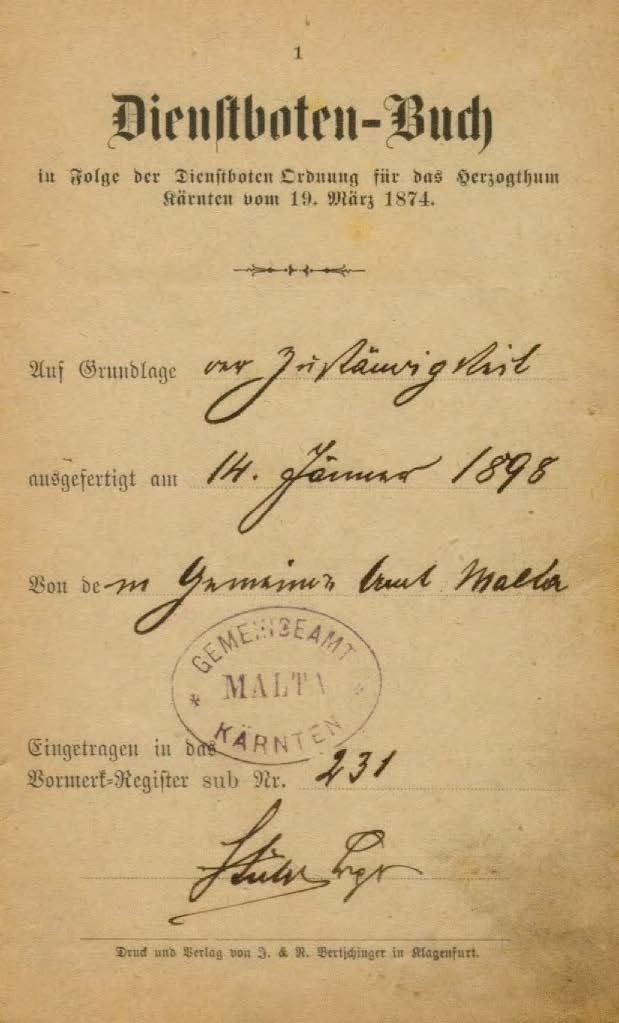 1
Dienstboten-Buch
in Folge der Dienstboten Ordnung für das Herzogthum
Kärnten vom 19. März 1874.
Auf Grundlage der Zuständigkeit
ausgefertigt am 14. Jänner 1898
Von dem Gemeinde Amt Malta
GEMEINDEAMT
MALTA
KÄRNTEN
Eingetragen in das
Vormerk-Register sub Nr. 231
Druck und Verlag von J. & R. Bertschinger in Klagenfurt.